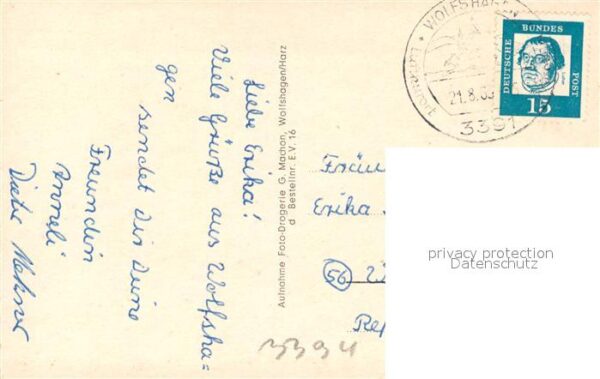 Liebe Erika!
Viele Grüße aus Wolfsha=
gen
sendet Dir Deine
Freundin
Anneli
Aufnahme Foto-Drogerie G. Machon, Wolfshagen/Harz
d Bestellnr. E.V. 16
WOLFSHAG
21.8.63
3391
DEUTSCHE
BUNDES
POST
15
Fräu
Erika
56
3394
privacy protection
Datenschutz